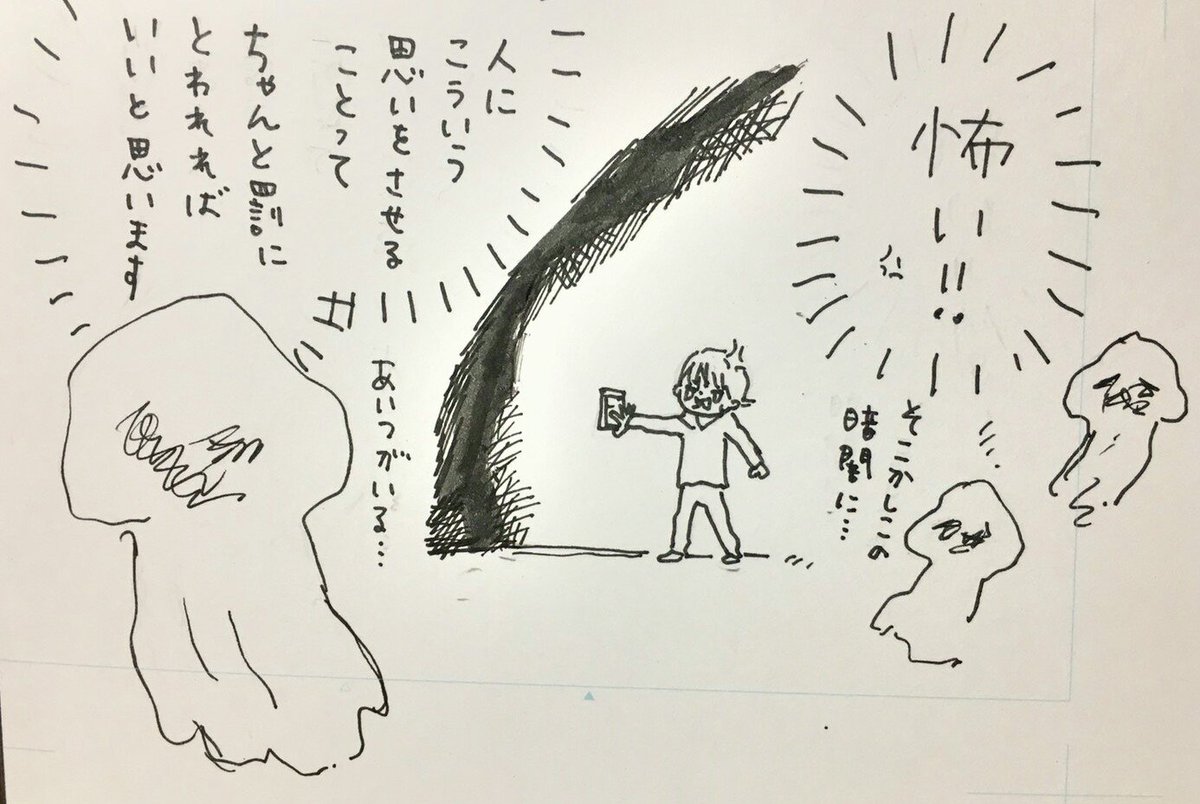 怖い!!
そこかしこの
暗闇に…
人に
こういう
思いをさせる
ことって
ちゃんと罰に
とわれれば
いいと思います
あいつがいる…